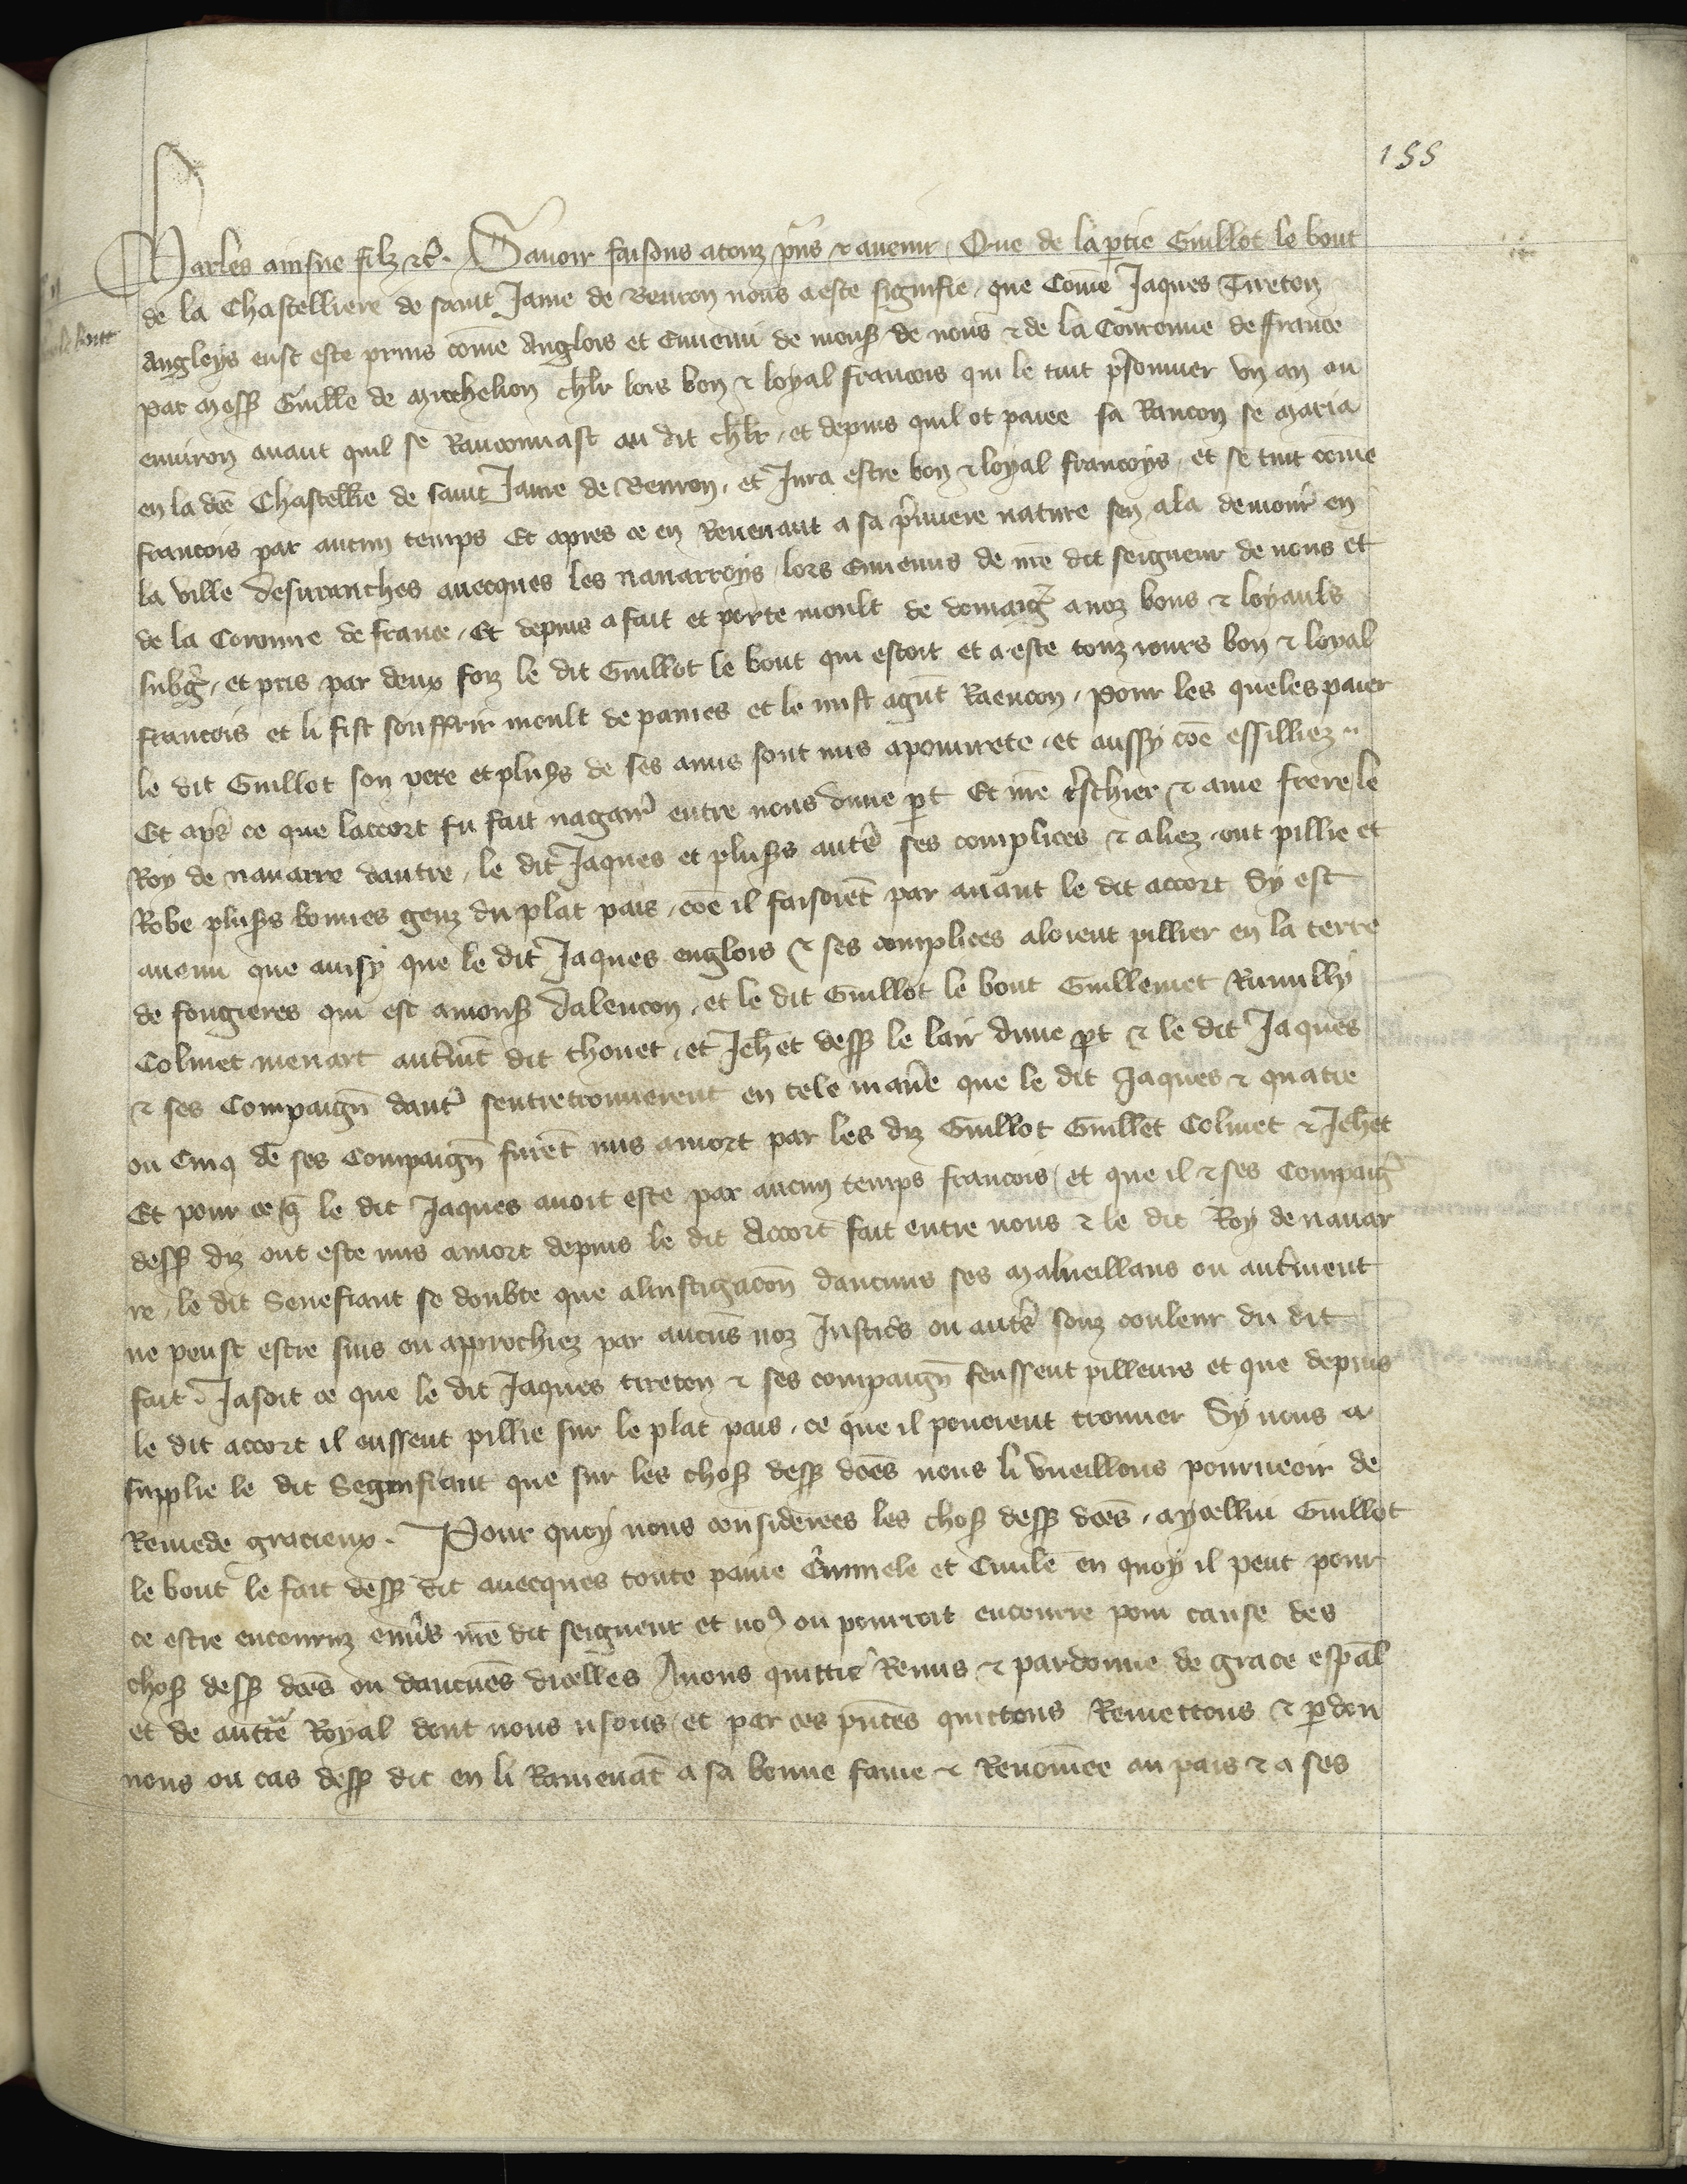 155
Charles ainsne filz etc. Savoir faisons a touz pns et avenir, Que de la ptie Guillot le bout
de la Chastelliere de saint Jame de Beuron nous a este signifie, que Come Jaques Tireton
Angleys eust este prins come Anglois et Ennemi de mons de nous et de la Couronne de ffrance
par mess Guille de chlr lors bon et loyal francois qui le tint psonnier un an ou
environ avant quil se Ranconnast au dit chlr, et depuis quil ot paiee sa Rancon se maria
en la dce Chastellie de saint Jame de Beuron, et Jura estre bon et loyal francoys, et se tint come
francois par aucun temps Et apres ce en Revenant a sa pmiere nature sen ala demour en
la ville desuranches avecques les navarroys lors Ennemis de nre dit seigneur de nous et
de la Coronne de france, Et depuis a fait et porte moult de domaig a noz bons et loyauls
subg, et pris par deux foiz le dit Guillot le bout qui estoit et a este touz iours bon et loyal
francois et li fist souffrir moult de paines et le mist a gnt Raencon, pour les queles paier
le dit Guillot son pere et pluss de ses amis sont mis a pouvrete, et aussy coe essilliez
Et aps ce que laccort fu fait nagair entre nous dune pt Et nre tschier et ame frere le
Roy de navarre dautre, le dit Jaques et pluss autr ses complices et aliez, ont pillie et
Robe pluss bonnes genz du plat pais, coe il faisoient par avant le dit accort Sy est
avenu que ainsy que le dit Jaques englois et ses complices aloient pillier en la terre
de fougieres qui est a mons dalencon, et le dit Guillot le bout Guillemet Rumilly
Colinet menart autmt dit thouet, et Jehet dess le lair dune pt et le dit Jaques
et ses Compaign daut sentretrouverent en tele manie que le dit Jaques et quatre
ou Cinq de ses Compaign furet mis a mort par les diz Guillot Guillet Colinet et Jehet
Et pour ce q le dit Jaques avoit este par aucun temps francois, et que il et ses Compaig
dess diz ont este mis a mort depuis le dit Accort fait entre nous et le dit Roy de navar
re, le dit Senefiant se doubte que a linstigacon daucuns ses malveillans ou autment
ne peust estre suis ou approchiez par aucus noz Justics ou autrs souz couleur du dit
fait. Jasoit ce que le dit Jaques tireton et ses compaign feussent pilleurs et que depuis
le dit accort il eussent pillie sur le plat pais, ce que il povoient trouver Sy nous a
supplie le dit Segnifiant que sur les chos dess dces nous li vueillons pourveoir de
Remede gracieux. Pour quoy nous considerees les chos dess dces, a ycellui Guillot
le bout le fait dess dit avecques toute paine Criminele et Civile en quoy il peut pour
ce estre encouruz envs nre dit seigneur et nos ou pourroit encourre pour cause des
chos dess dces ou daucunes dicelles Avons quittie Remis et pardonne de grace espal
et de auctte Royal dont nous usons, et par ces pntes quittons Remettons et pdon
nons ou cas dess dit en li Ramenat a sa bonne fame et Renomee au pais et a ses